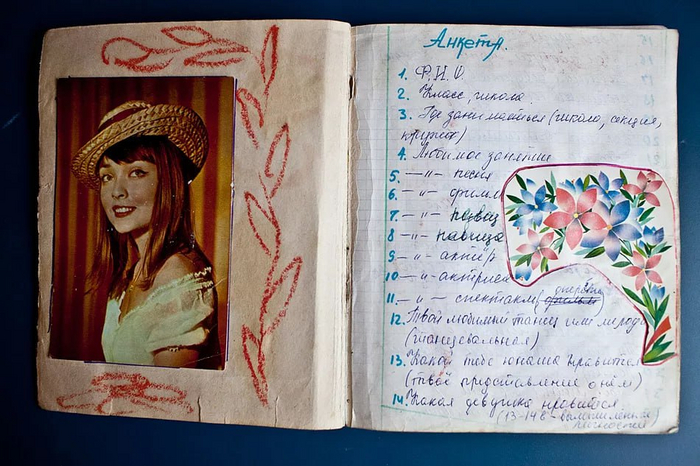 Анкета.
1. Ф.И.О.
2. Класс, школа.
3. Где занимаешься (школа, секция,
кружок)
4. Любимое занятие
5. —"— песня
6. —"— фильм
7. —"— певец
8 —"— певица
9 —"— актёр
10 —"— актриса
11. —"— спектакль (оперетта)
12. Твой любимый танец или мелодия
(танцевальная)
13. Какой тебе юноша нравится
(твоё представление о нём)
14. Какая девушка нравится.
(13-14в - вымышленные
личности)